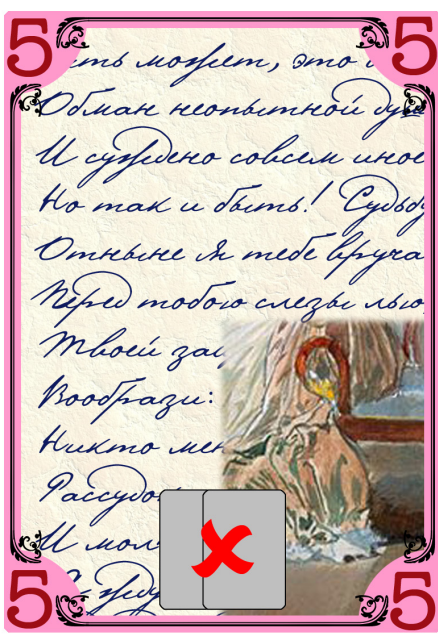 5 5
сть может, это
Обман неопытной ду
И суждено совсем иное
Но так и быть! Судьбу
Отныне я тебе вруча
Перед тобою слезы лью,
Твоей защ
Вообрази:
Никто мен
Рассудо
И мол
жду
5 5